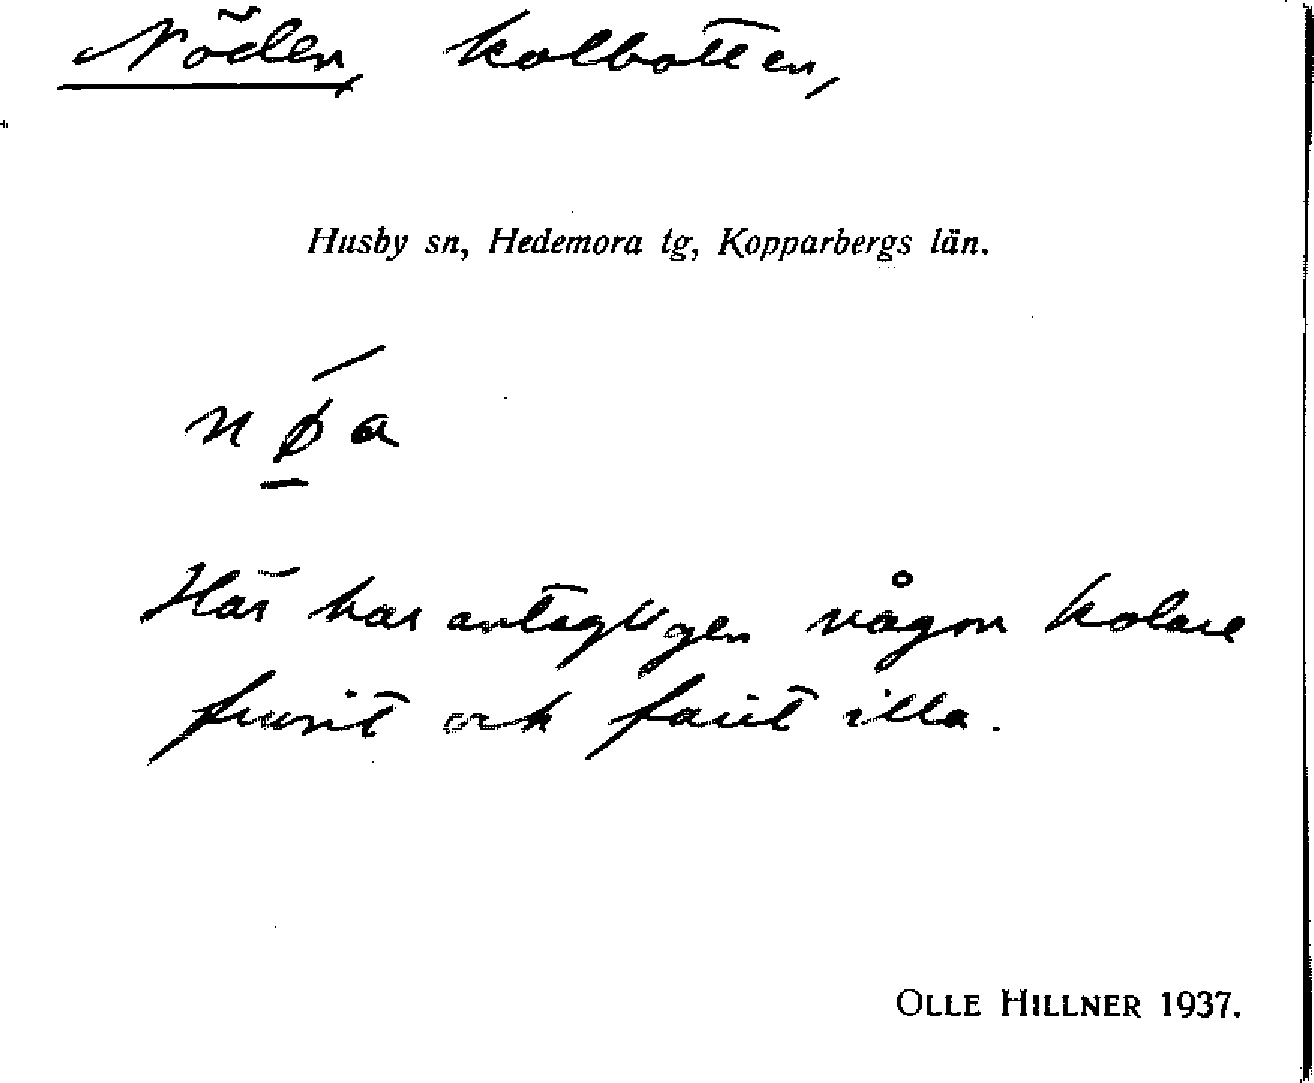 Nöden, kolbotten,
Husby sn, Hedemora tg, Kopparbergs län.
nǿ̱a
Här har antagligen någon kolare
frusit och farit illa.
OLLE HILLNER 1937.